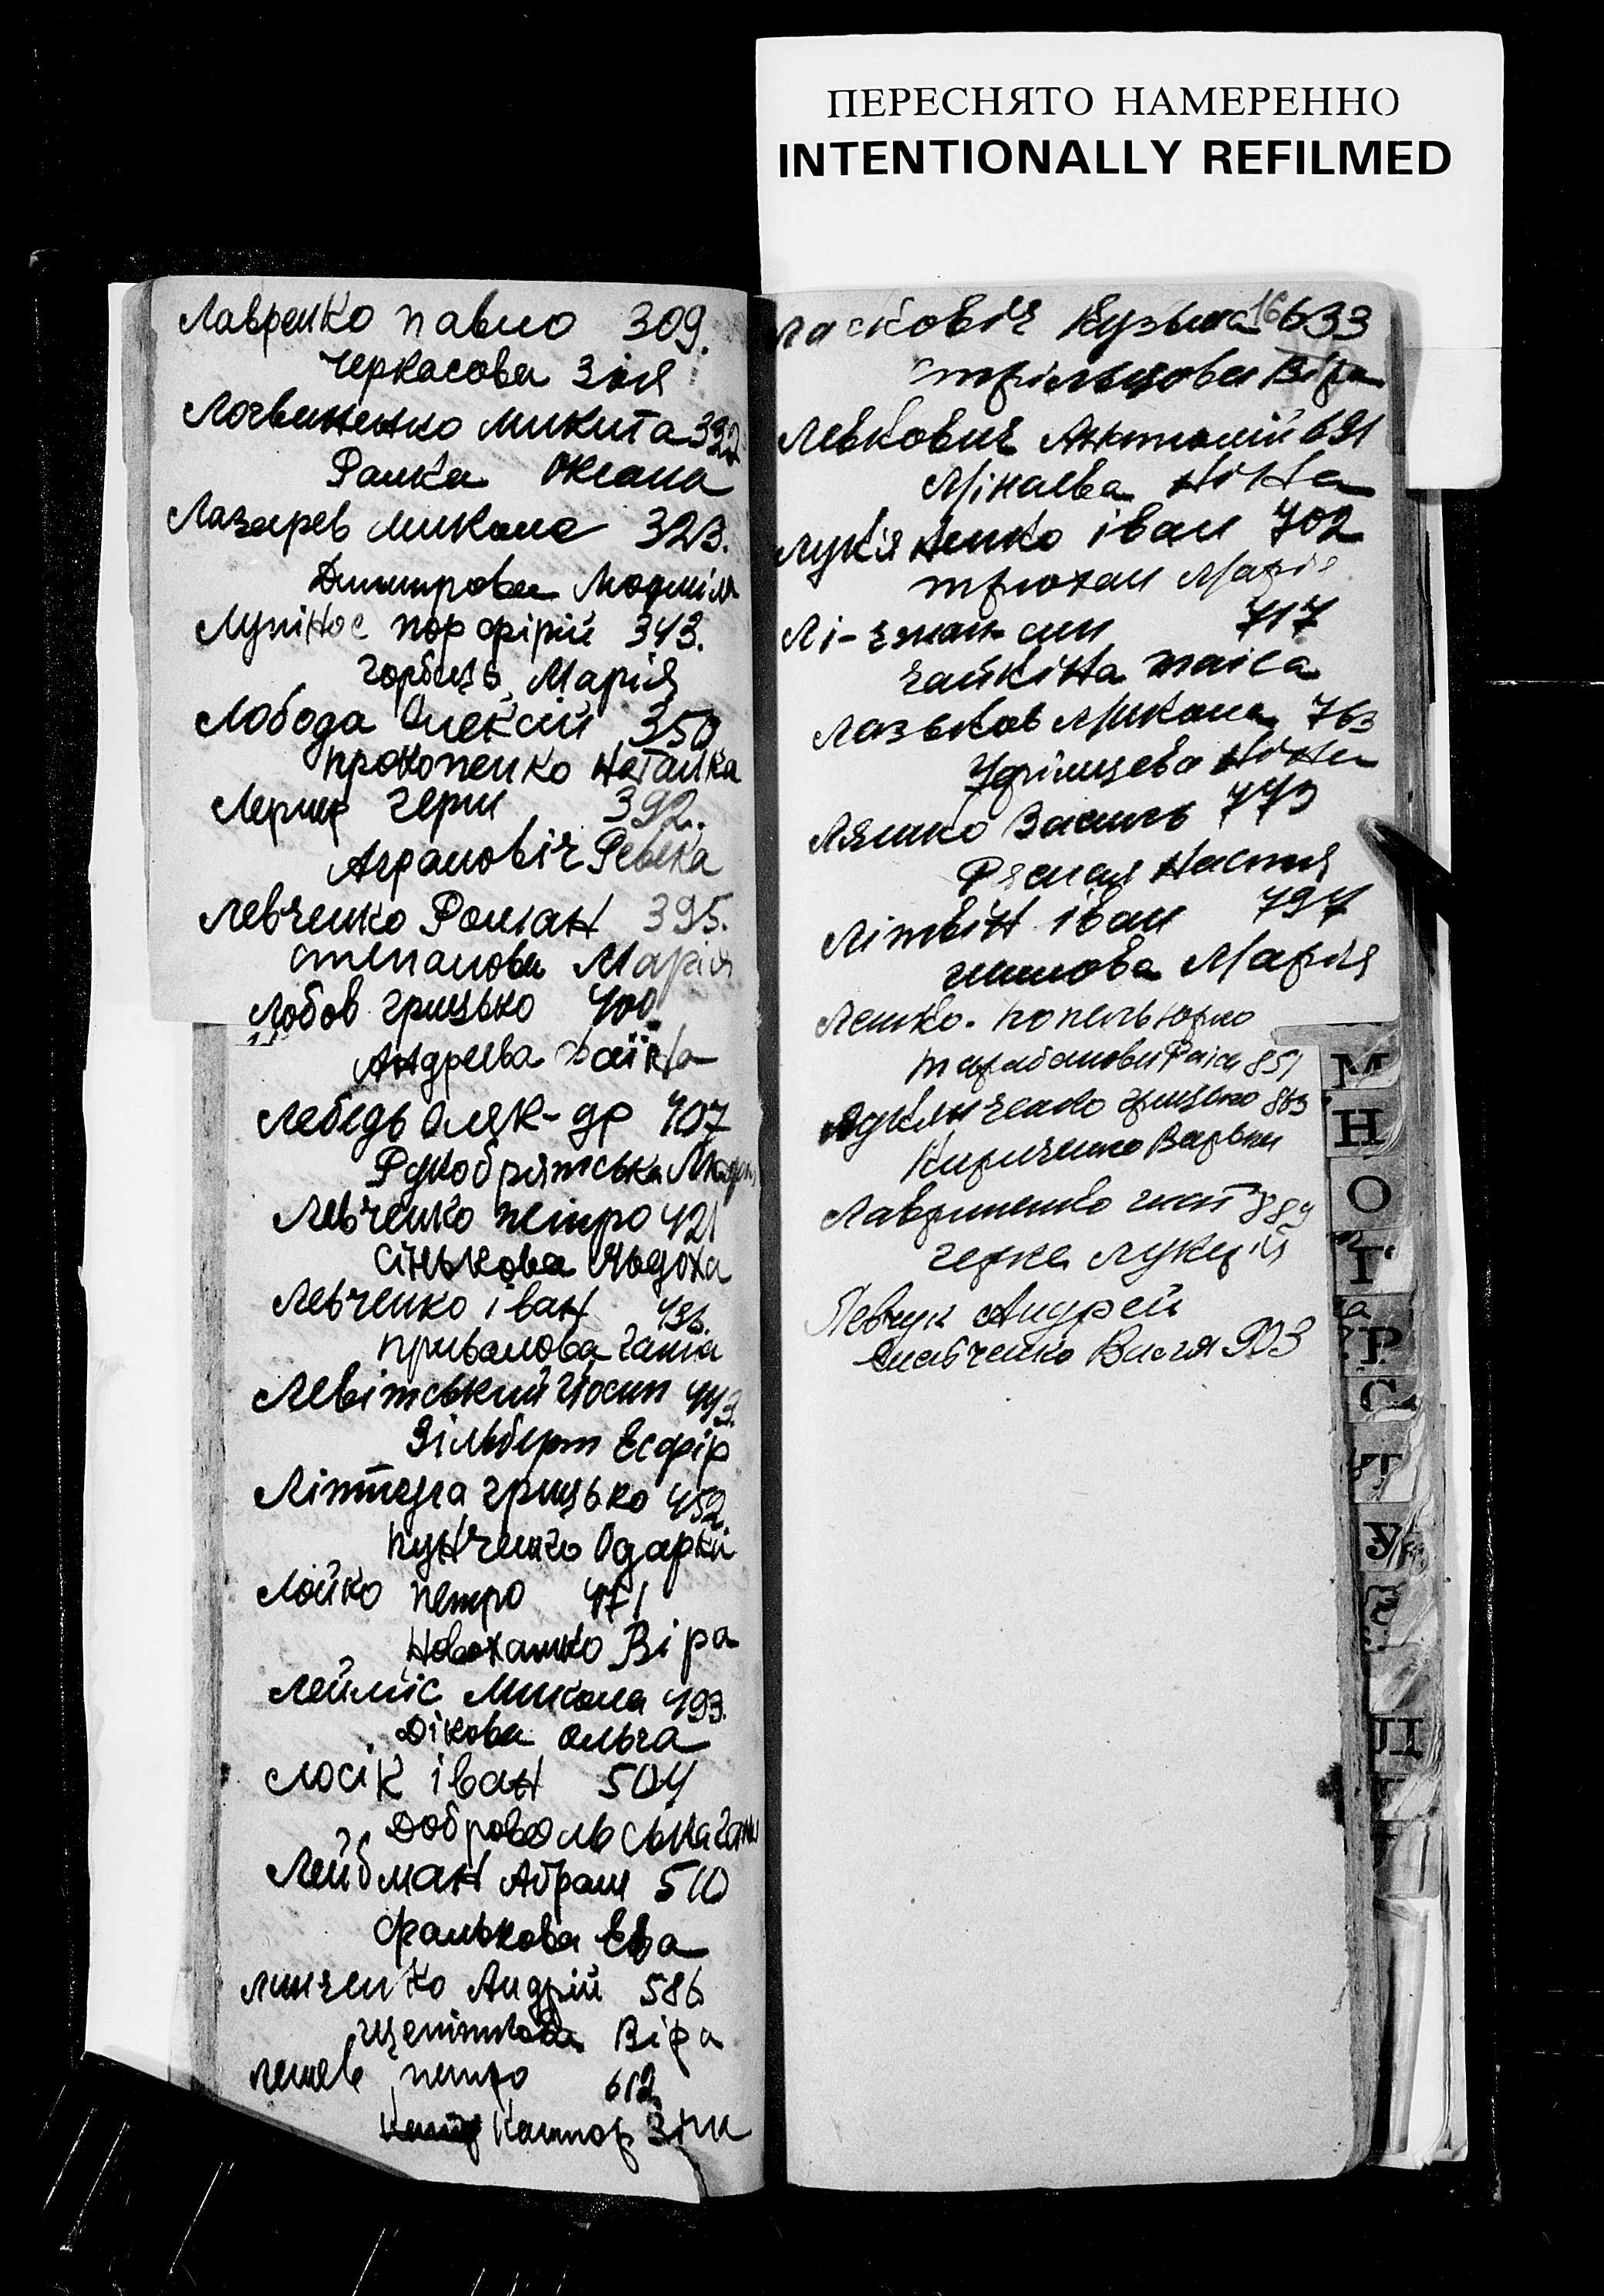 ПЕРЕСНЯТО НАМЕРЕННО
INTENTIONALLY REFILMED
Лавренко Павло 309.
Черкасова Зоя
Логвиненко Микита 332
Рамка Оксана
Лазарев Микола 323.
Дмитрова Людміла
Лупінос Порфірій 343.
Горбець Марія
Лобода Олексій 350
Прокопенко Наталка
Лернер Герш 392.
Аграновіч Ревека
Левченко Роман 395.
Степанова Марія
Лобов Грицько 400.
Андреєва
Лебедь Оляк-др 407
Рукобрятська
Левченко Петро 421
Сінькова Явдоха
Левченко Іван 436.
Привалова Ганна
Левітський Йосип 443.
Зільберт Есфір
Грицько 452.
Пунченко Одарка
Лойко Петро 471
Новохатко Віра
Лейміс Микола 493.
Дікова Ольга
Лосік Іван 504
Добровольська Ганна
Лейбман Абрам 510
Фалькова Ева
Линченко Андрій 586
Щепіткова Віра
Петро 612
Кантор Зіна
16
Ласковіч Кузьма 633
Стрільцова Віра
Левкович Антоній 691
Мінаєва Нінна
Лук'яненко Іван 702
Трюхан Марія
Лі-Еман-син 717
Чайкіна Таіса
Лазьков Микола 763
Нінна
Ляшко Василь 773
Рясная Настя
Літвін Іван 797
Марія
Лешко-Попель Юрко
Тарабанова Раіса 851
Лук'янченко Грицько 863
Кириченко Варька
Лавриненко Гнат 889
Черка Лукерія
Левчук Андрей
Савченко Васля 903
М
Н
О
П
Р
С
Т
У
Ц